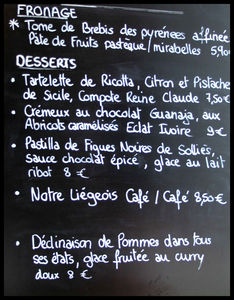 FROMAGE
* Tome de Brebis des pyrénées affinée
Pâte de Fruits pastèque/mirabelles 5,90
DESSERTS
• Tartelette de Ricotta, Citron et Pistache
de Sicile, Compote Reine Claude 7,50€
• Crémeux au chocolat Guanaja, aux
Abricots caramélisés Eclat Ivoire 9€
• Pastilla de Figues Noires de Solliès,
sauce chocolat épicé, glace au lait
ribot 8€
• Notre Liégeois Café / Café 8,50€
• Déclinaison de Pommes dans tous
ses états, glace fruitée au curry
doux 8€